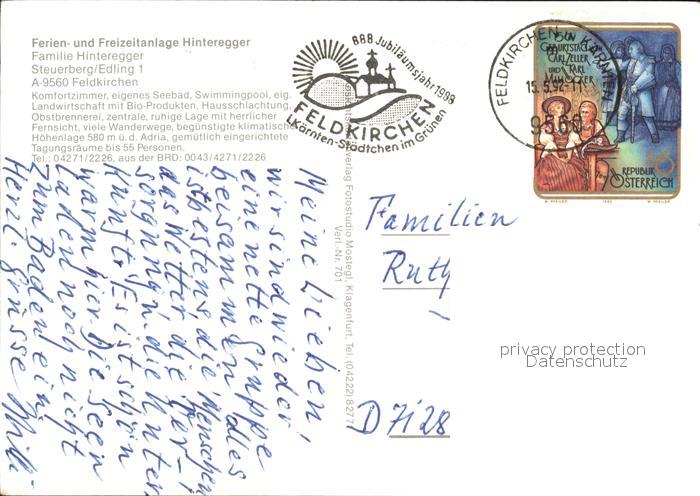 Ferien- und Freizeitanlage Hinteregger
Familie Hinteregger
Steuerberg/Edling 1
A-9560 Feldkirchen
Komfortzimmer, eigenes Seebad, Swimmingpool, eig.
Landwirtschaft mit Bio-Produkten, Hausschlachtung,
Obstbrennerei, zentrale, ruhige Lage mit herrlicher
Fernsicht, viele Wanderwege, begünstigte klimatische
Höhenlage 580 m ü. d. Adria, gemütlich eingerichtete
Tagungsräume bis 55 Personen.
Tel.: 04271/2226, aus der BRD: 0043/4271/2226
888 Jubiläumsjahr 1998
FELDKIRCHEN
i.Kärnten-Städtchen im Grünen
FELDKIRCHEN IN KÄRNTEN
15.5.92-11
9560
GEBURTSTAG
CARL ZELLER
UND KARL
MILLÖCKER
6
REPUBLIK
ÖSTERREICH
1992
Verlag Fotostudio Mostegl, Klagenfurt, Tel. (04222) 8277
Verl.-Nr. 701
Meine Lieben,
wir sind wieder
eine nette Gruppe
beisammen. Alles
ist bestens, die Menschen
das Wetter, die Ver-
sorgung u. die Unter-
kunft. Es ist schön
warm hier. Die Seen
laden noch nicht
zum Baden ein.
Herzl. Grüsse Milli
Familien
Ruth
D 7128
privacy protection
Datenschutz